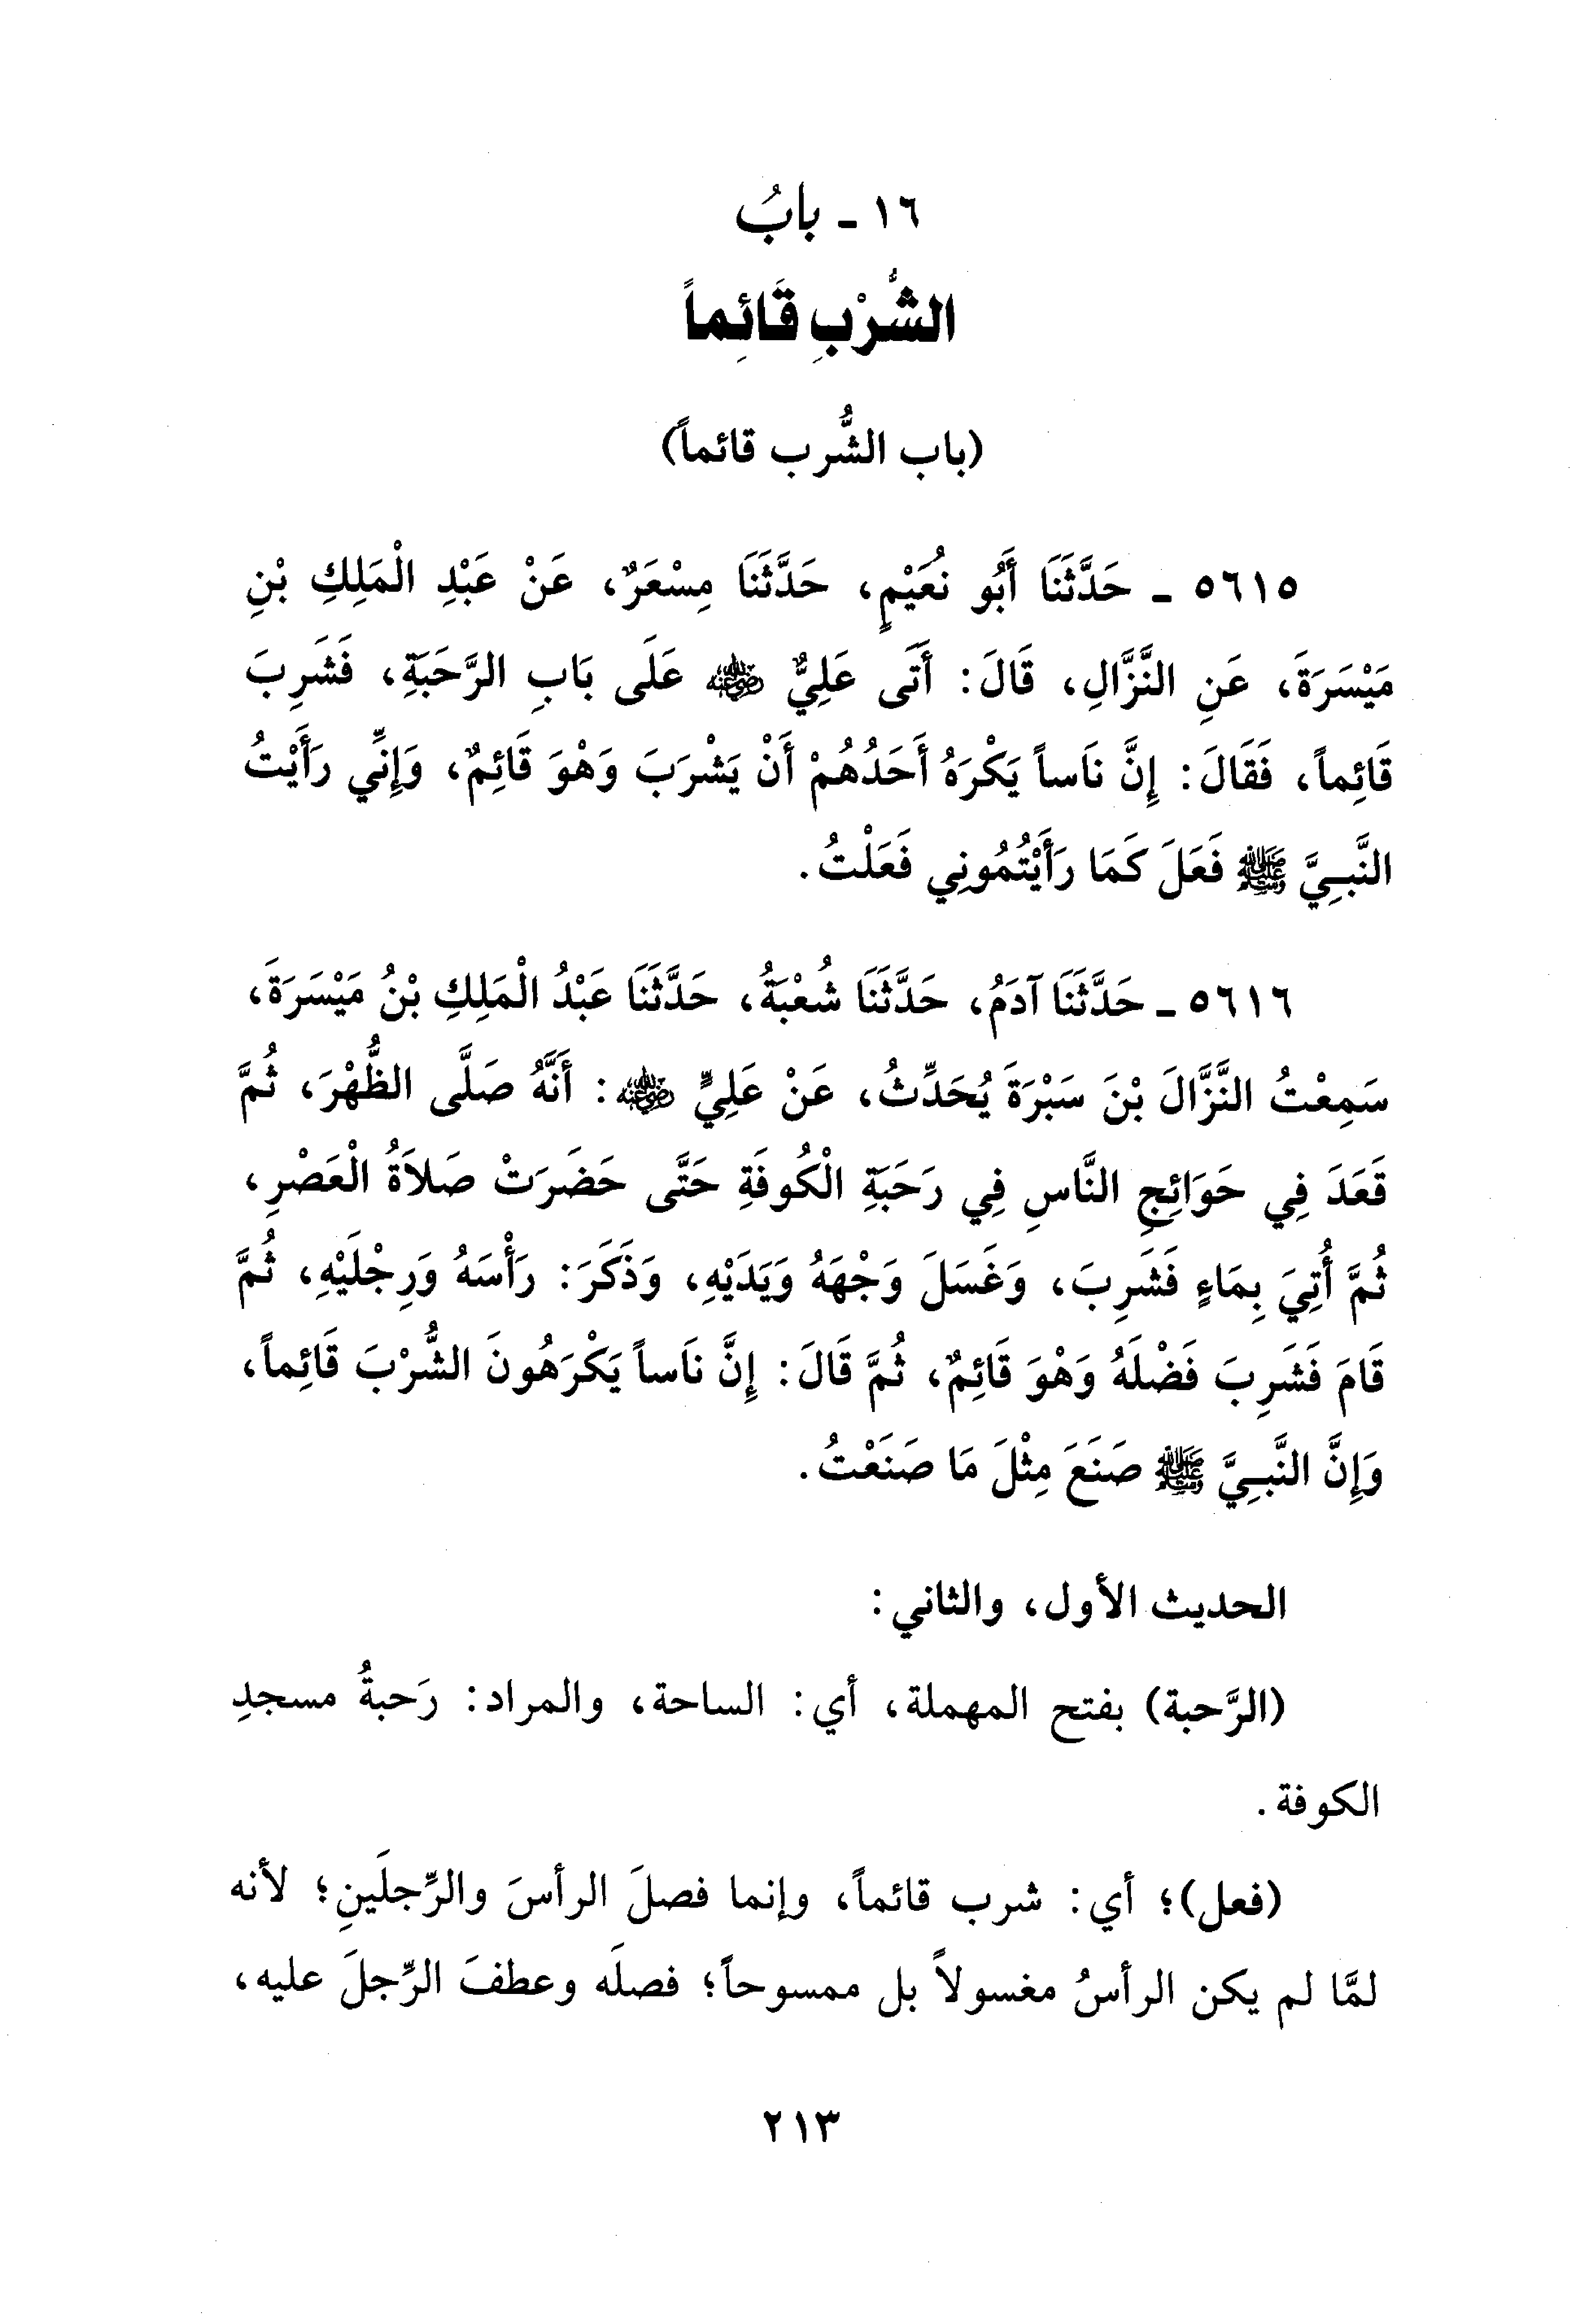 ١٦ - بابُ
الشُّرْبِ قَائِماً
(باب الشُّرب قائماً)
٥٦١٥ - حَدَّثَنَا أَبُو نُعَيْمٍ، حَدَّثَنَا مِسْعَرٌ، عَنْ عَبْدِ الْمَلِكِ بْنِ
مَيْسَرَةَ، عَنِ النَّزَّالِ، قَالَ: أَتَى عَلِيٌّ رضي الله عنه عَلَى بَابِ الرَّحَبَةِ، فَشَرِبَ
قَائِماً، فَقَالَ: إِنَّ نَاساً يَكْرَهُ أَحَدُهُمْ أَنْ يَشْرَبَ وَهْوَ قَائِمٌ، وَإِنِّي رَأَيْتُ
النَّبِيَّ ﷺ فَعَلَ كَمَا رَأَيْتُمُونِي فَعَلْتُ.
٥٦١٦ - حَدَّثَنَا آدَمُ، حَدَّثَنَا شُعْبَةُ، حَدَّثَنَا عَبْدُ الْمَلِكِ بْنُ مَيْسَرَةَ،
سَمِعْتُ النَّزَّالَ بْنَ سَبْرَةَ يُحَدِّثُ، عَنْ عَلِيٍّ رضي الله عنه: أَنَّهُ صَلَّى الظُّهْرَ، ثُمَّ
قَعَدَ فِي حَوَائِجِ النَّاسِ فِي رَحَبَةِ الْكُوفَةِ حَتَّى حَضَرَتْ صَلاَةُ الْعَصْرِ،
ثُمَّ أُتِيَ بِمَاءٍ فَشَرِبَ، وَغَسَلَ وَجْهَهُ وَيَدَيْهِ، وَذَكَرَ: رَأْسَهُ وَرِجْلَيْهِ، ثُمَّ
قَامَ فَشَرِبَ فَضْلَهُ وَهْوَ قَائِمٌ، ثُمَّ قَالَ: إِنَّ نَاساً يَكْرَهُونَ الشُّرْبَ قَائِماً،
وَإِنَّ النَّبِيَّ ﷺ صَنَعَ مِثْلَ مَا صَنَعْتُ.
الحديث الأول، والثاني:
(الرَّحبة) بفتح المهملة، أي: الساحة، والمراد: رَحبةُ مسجدِ
الكوفة.
(فعل)؛ أي: شرب قائماً، وإنما فصلَ الرأسَ والرِّجلَينِ؛ لأنه
لمَّا لم يكن الرأسُ مغسولاً بل ممسوحاً؛ فصلَه وعطفَ الرِّجلَ عليه،
٢١٣